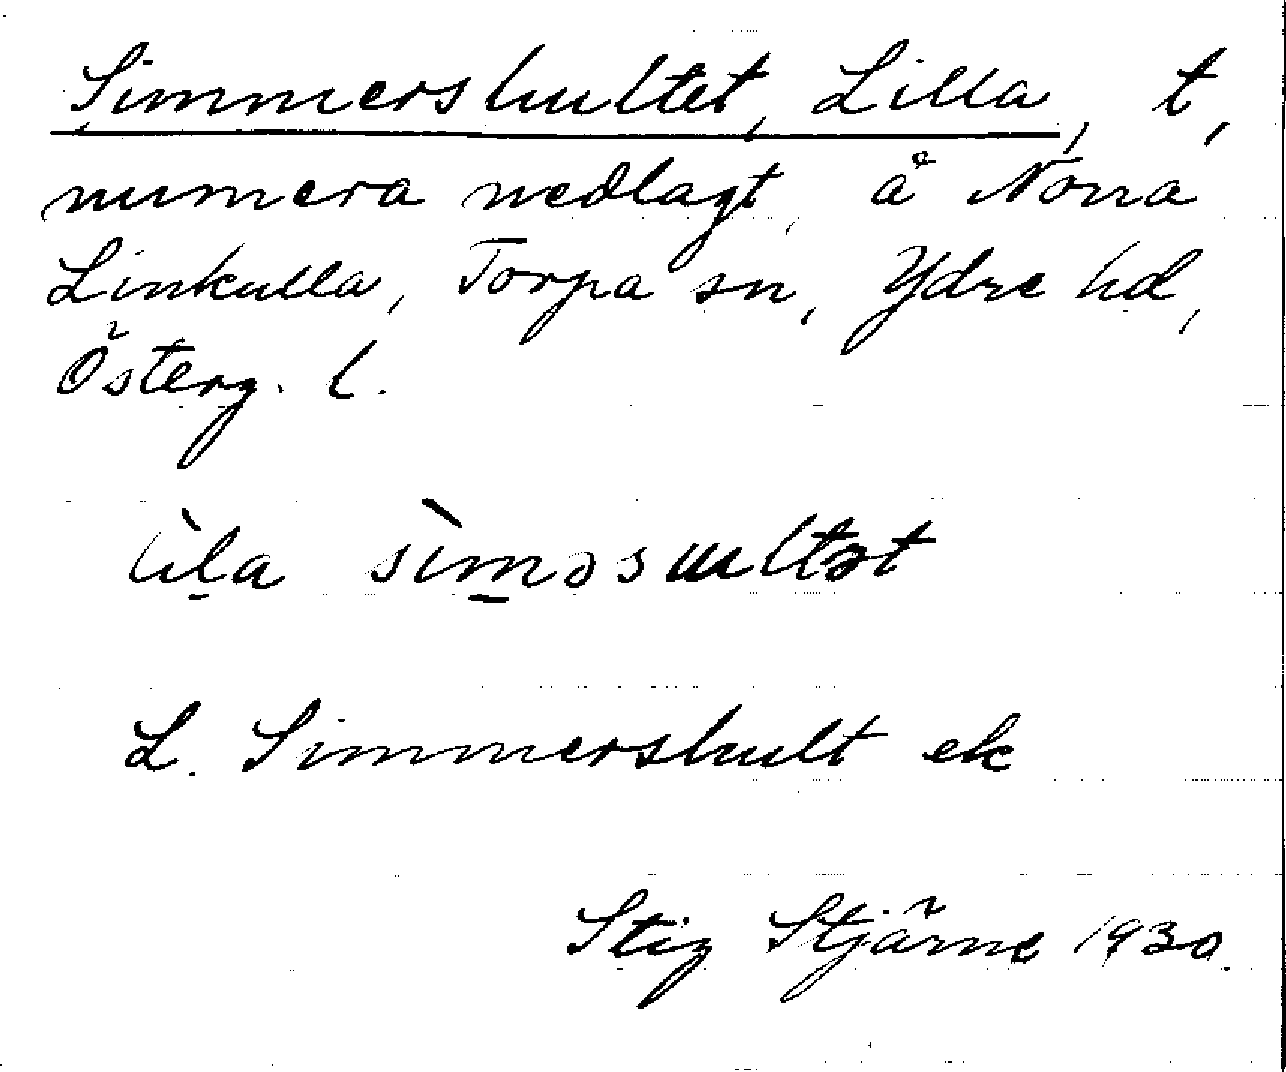 Simmershultet, Lilla, t,
numera nedlagt, å Norra
Linkulla, Torpa sn, Ydre hd,
Österg. l.
lìl̠a sìm̠əsultət
L. Simmershult ek
Stig Stjärne 1930.